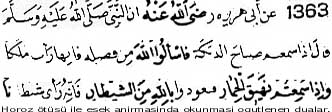 1363 عن أبي هريره رضى الله عنه ان النبى صلى الله عليه وسلم
واذا سمعتم صياح الديكة فاسألوا الله من فضله فإنها رأت ملكا
واذا سمعتم نهيق الحمار فتعوذوا بالله من الشيطان فانه رأى شيطانا
Horoz ötüsü ile esek anirmasinda okunmasi ogutlenen dualar.